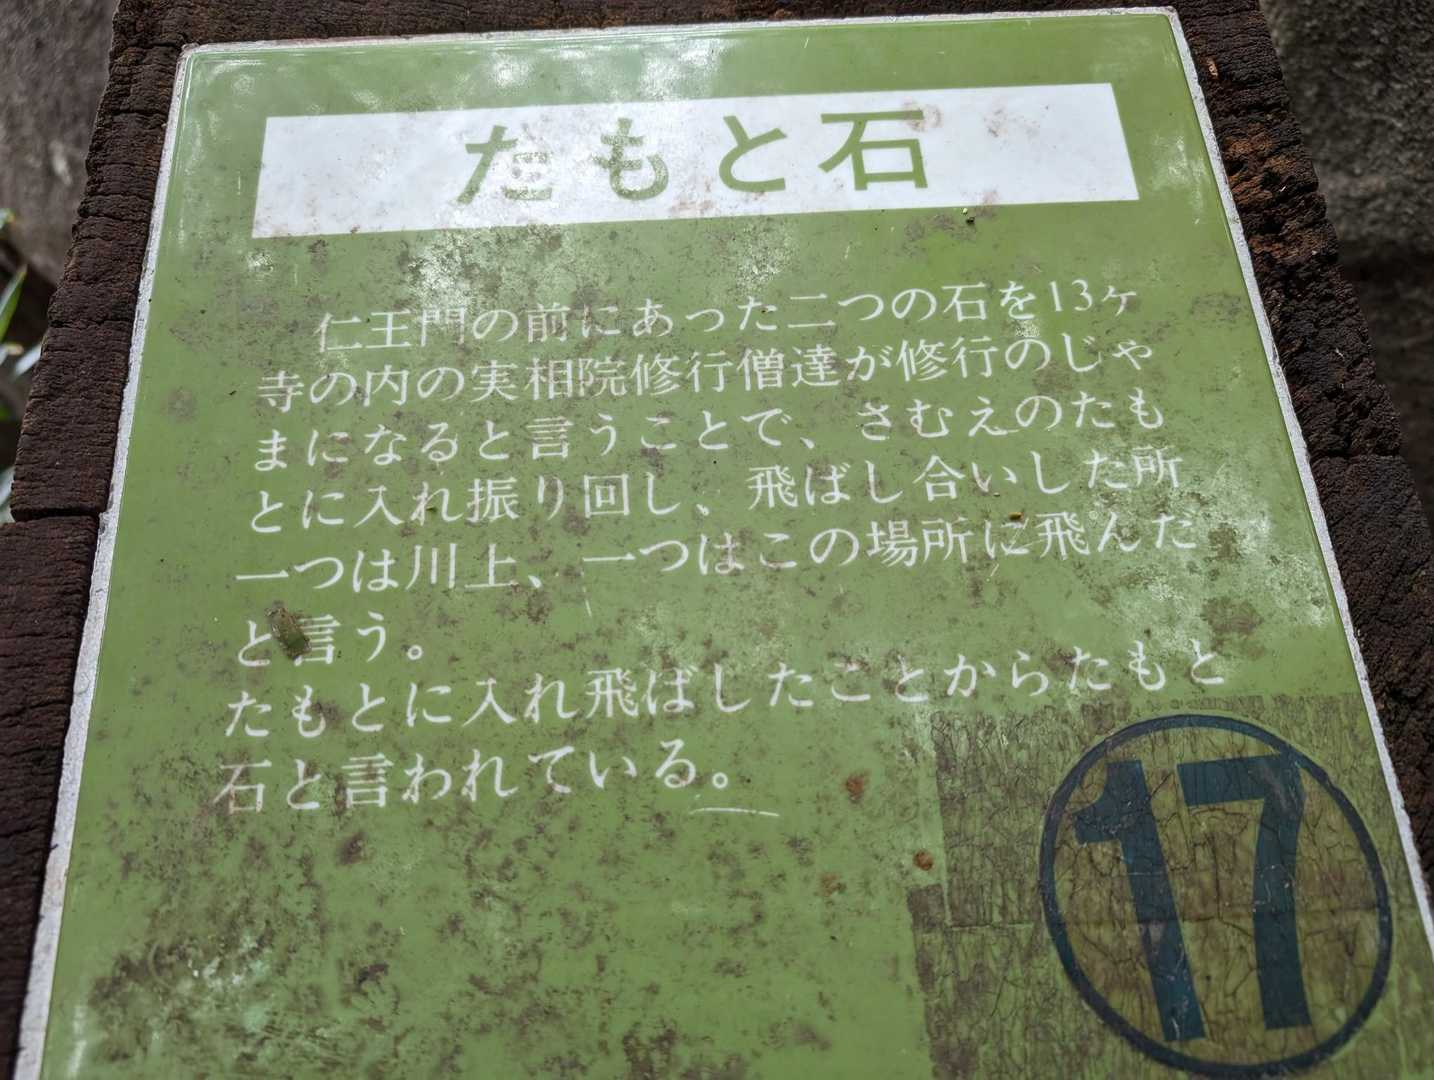 たもと石
仁王門の前にあった二つの石を13ヶ
寺の内の実相院修行僧達が修行のじゃ
まになると言うことで、さむえのたも
とに入れ振り回し、飛ばし合いした所
一つは川上、一つはこの場所に飛んだ
と言う。
たもとに入れ飛ばしたことからたもと
石と言われている。
17